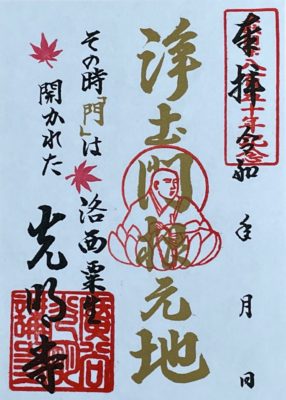 奉拝 令和 年 月 日
浄土門根元地
洛西粟生
光明寺
その時「門」は
開かれた